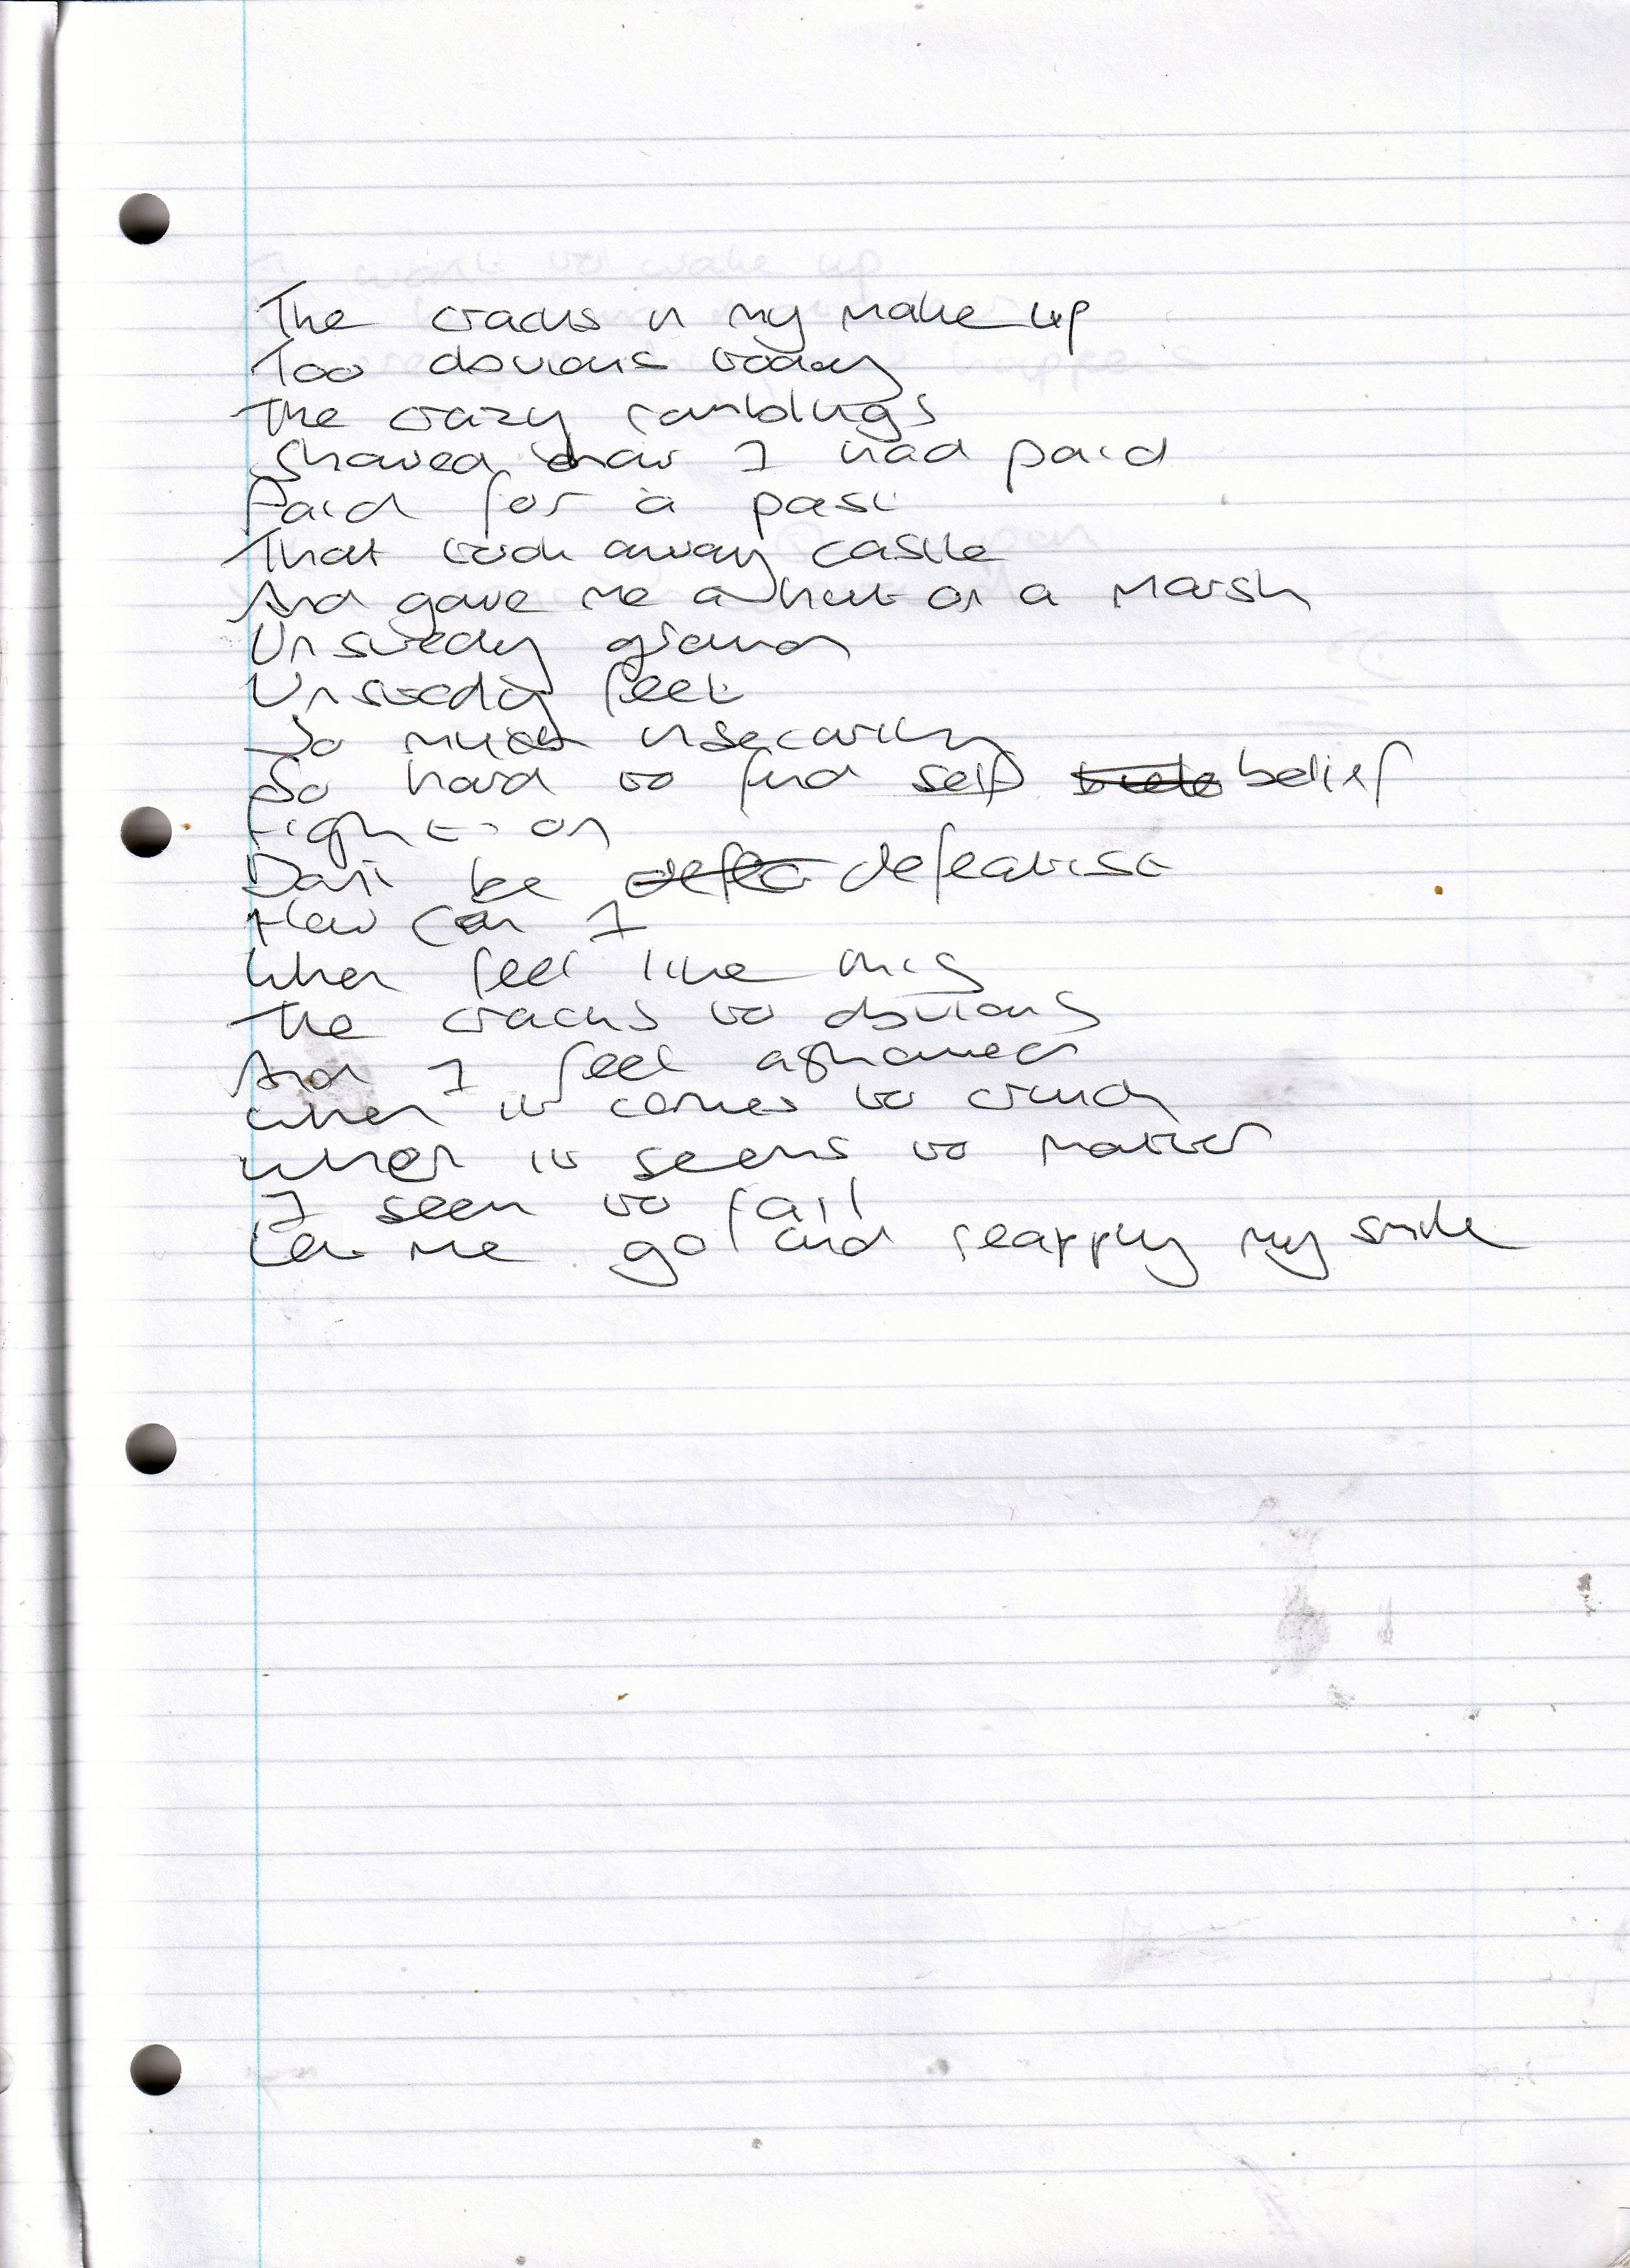 The cracks in my make up
Too obvious today
The crazy ramblings
Showed how I had paid
Paid for a past
That took away castle
And gave me a hut on a marsh
Unsteady ground
Unsteady feet
So much insecurity
So hard to find self belief
Fight on
Don't be defeatist
How can I
When feel like this
The cracks to obvious
And I feel ashamed
When it comes to crunch
When it seems to matter
I seem to fail
Let me go and reapply my smile